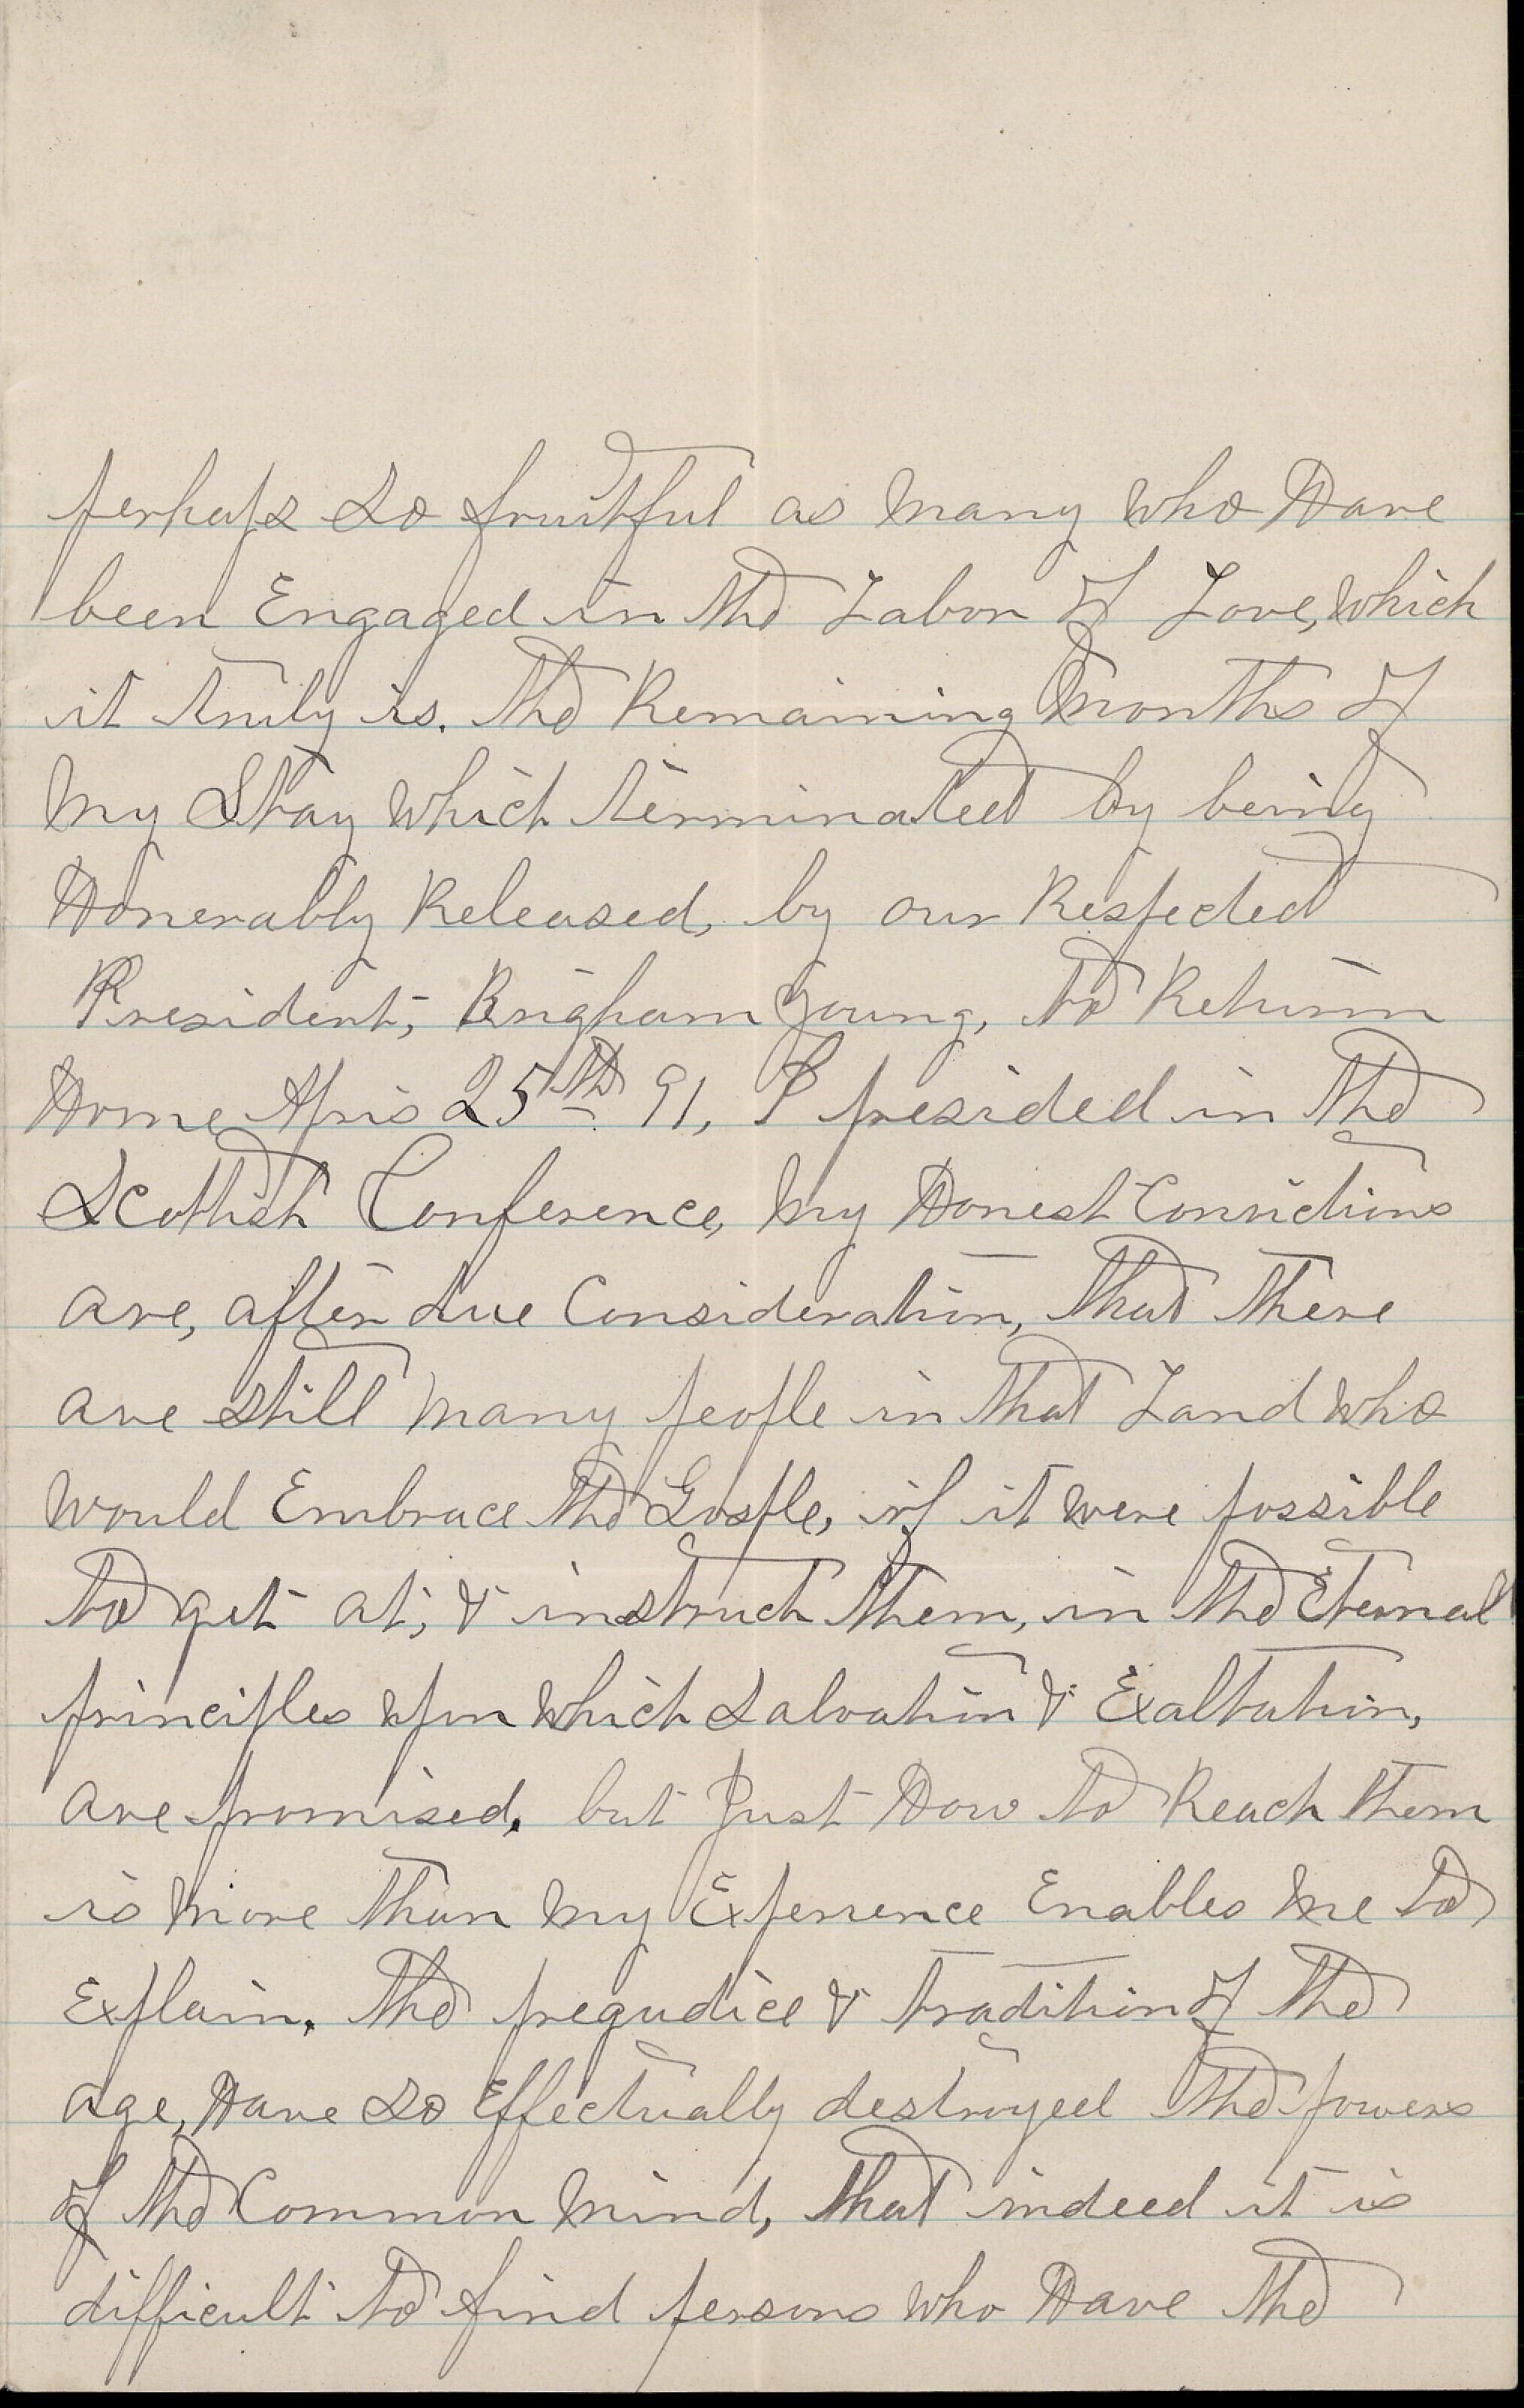 perhaps so fruitful as Many who Have
been Engaged in the Labor of Love, which
it truly is. the Remaining Months of
My Stay which terminated by being
Honerably Released, by our Respected
President, Brigham Young, to Return
Home Apris 25th 91, I presided in the
Scottish Conference, My Honest Convictions
are, after due Consideration, that there
are still Many people in that Land who
would Embrace the Gosple, if it were possible
to get at, & instruct them, in the Eternal
principles upon which Salvation & Exaltation,
are promised. but Just How to Reach them
is More than My Experience Enables Me to
Explain. the pregudice & tradition of the
age, Have so Effectually destroyed the powers
of the Common Mind, that indeed it is
difficult to find persons who Have the